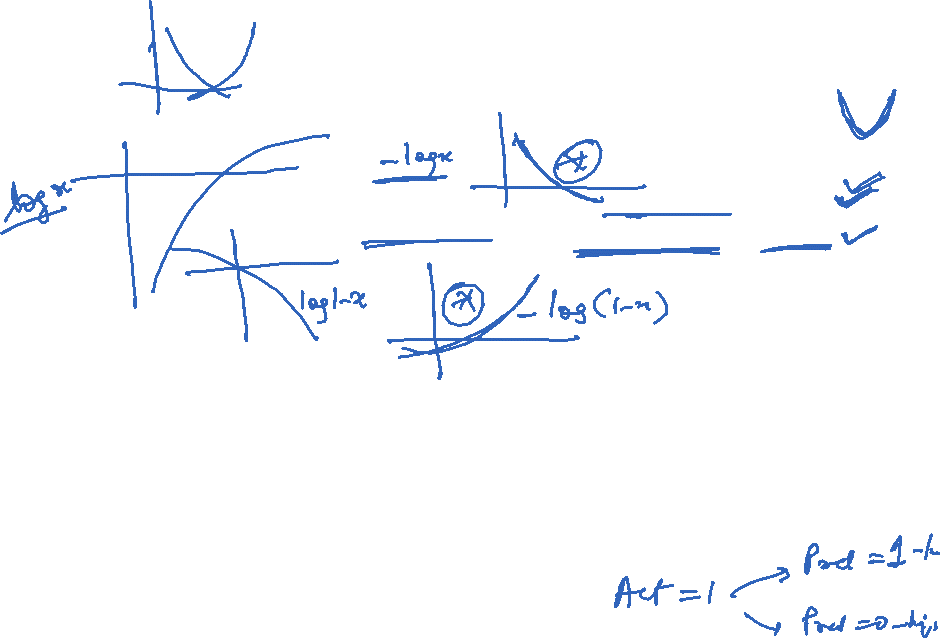 -logx
x
log x
log1-x
x
-log(1-x)
Act = 1
Pred = 1 -
Pred = 0 -